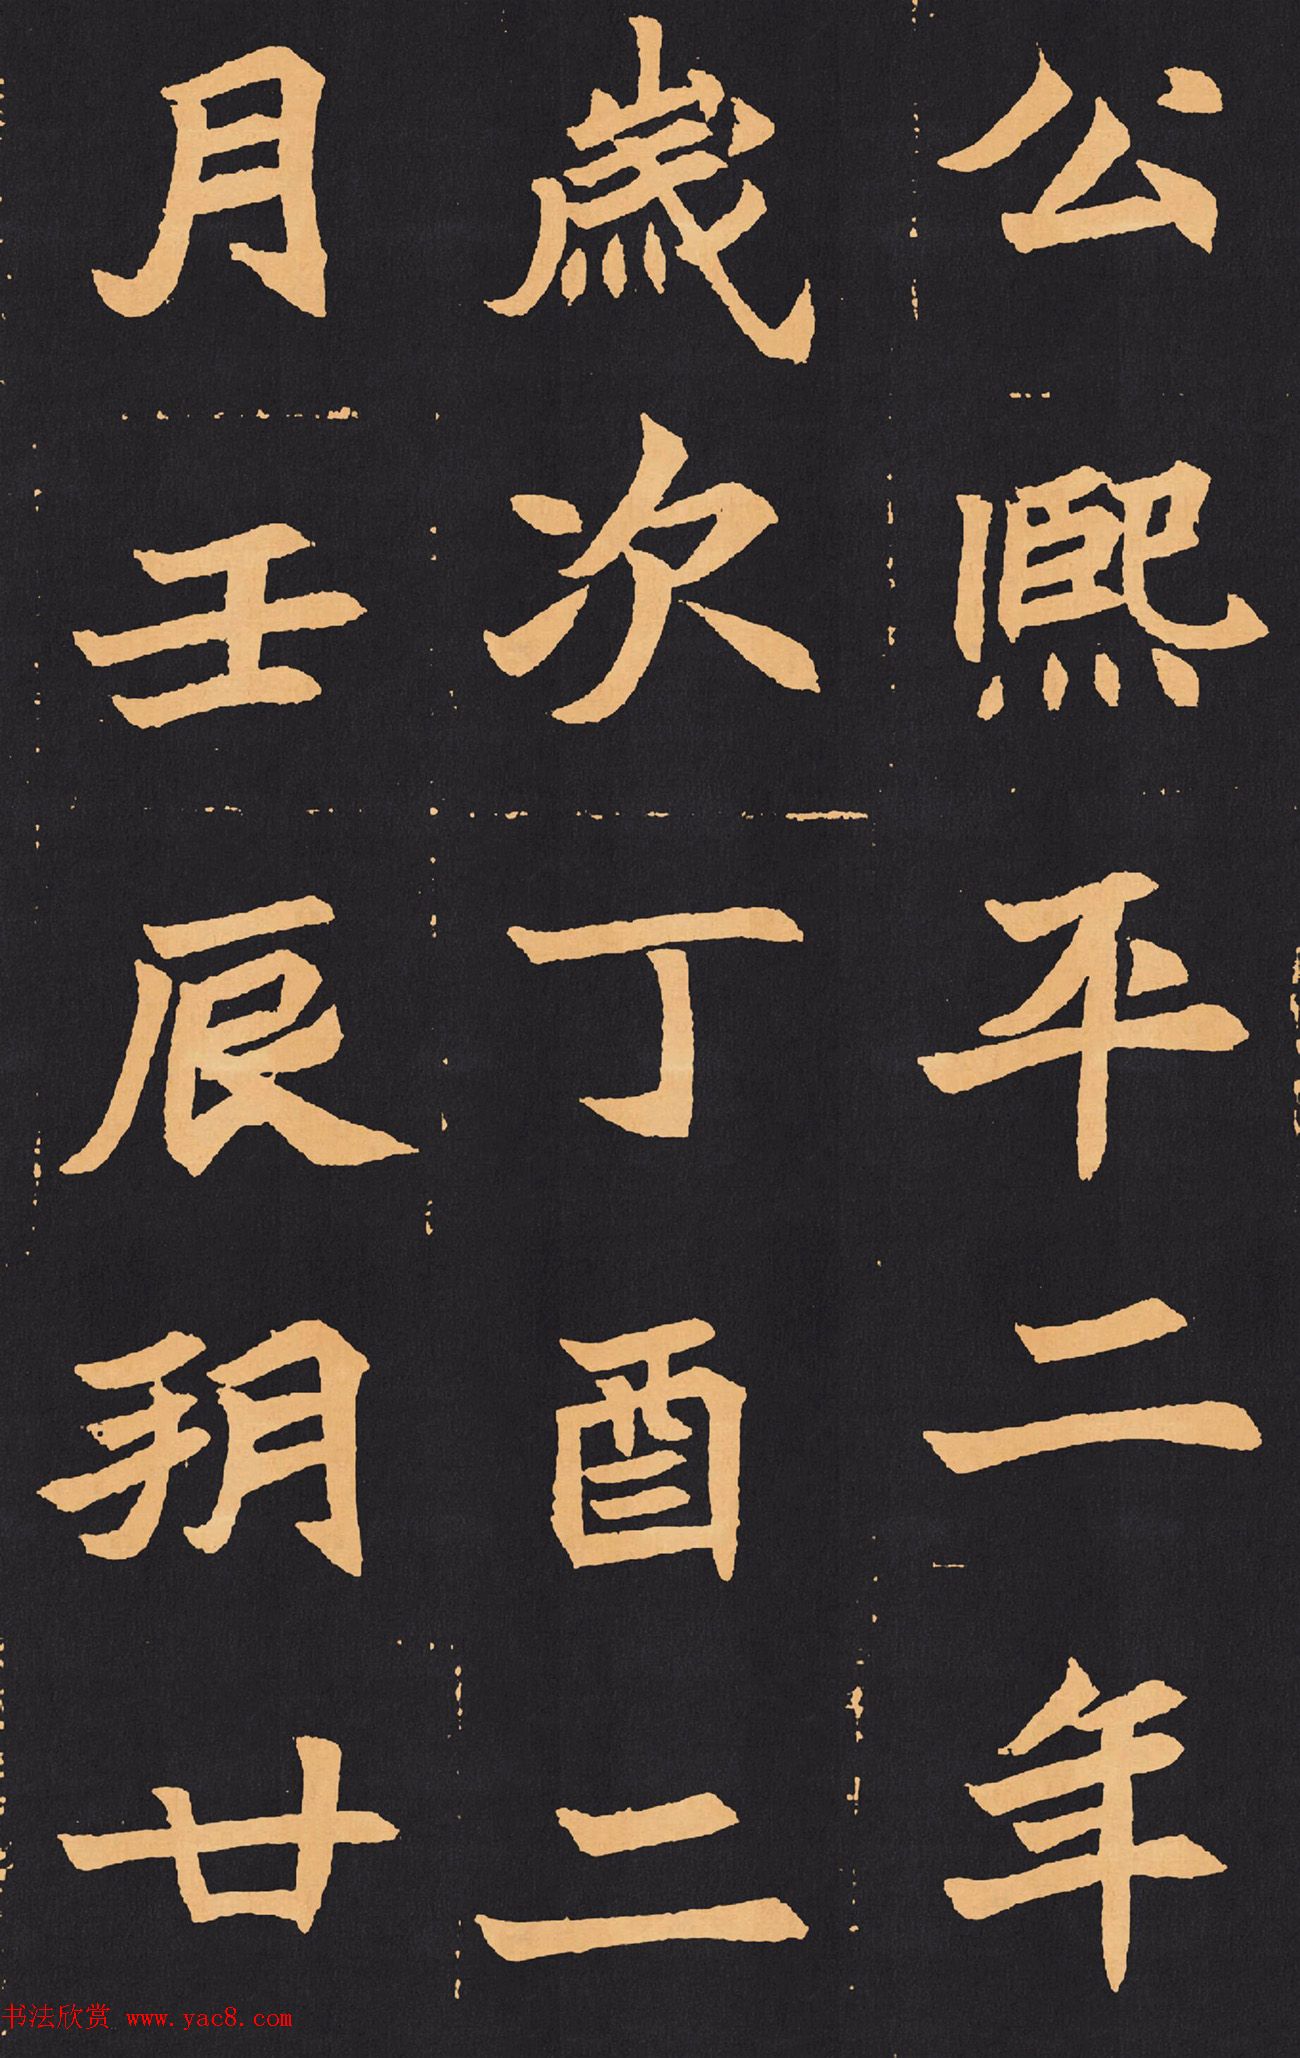 公熙平二年
歲次丁酉二
月壬辰朔廿
书法欣赏 www.yac8.com